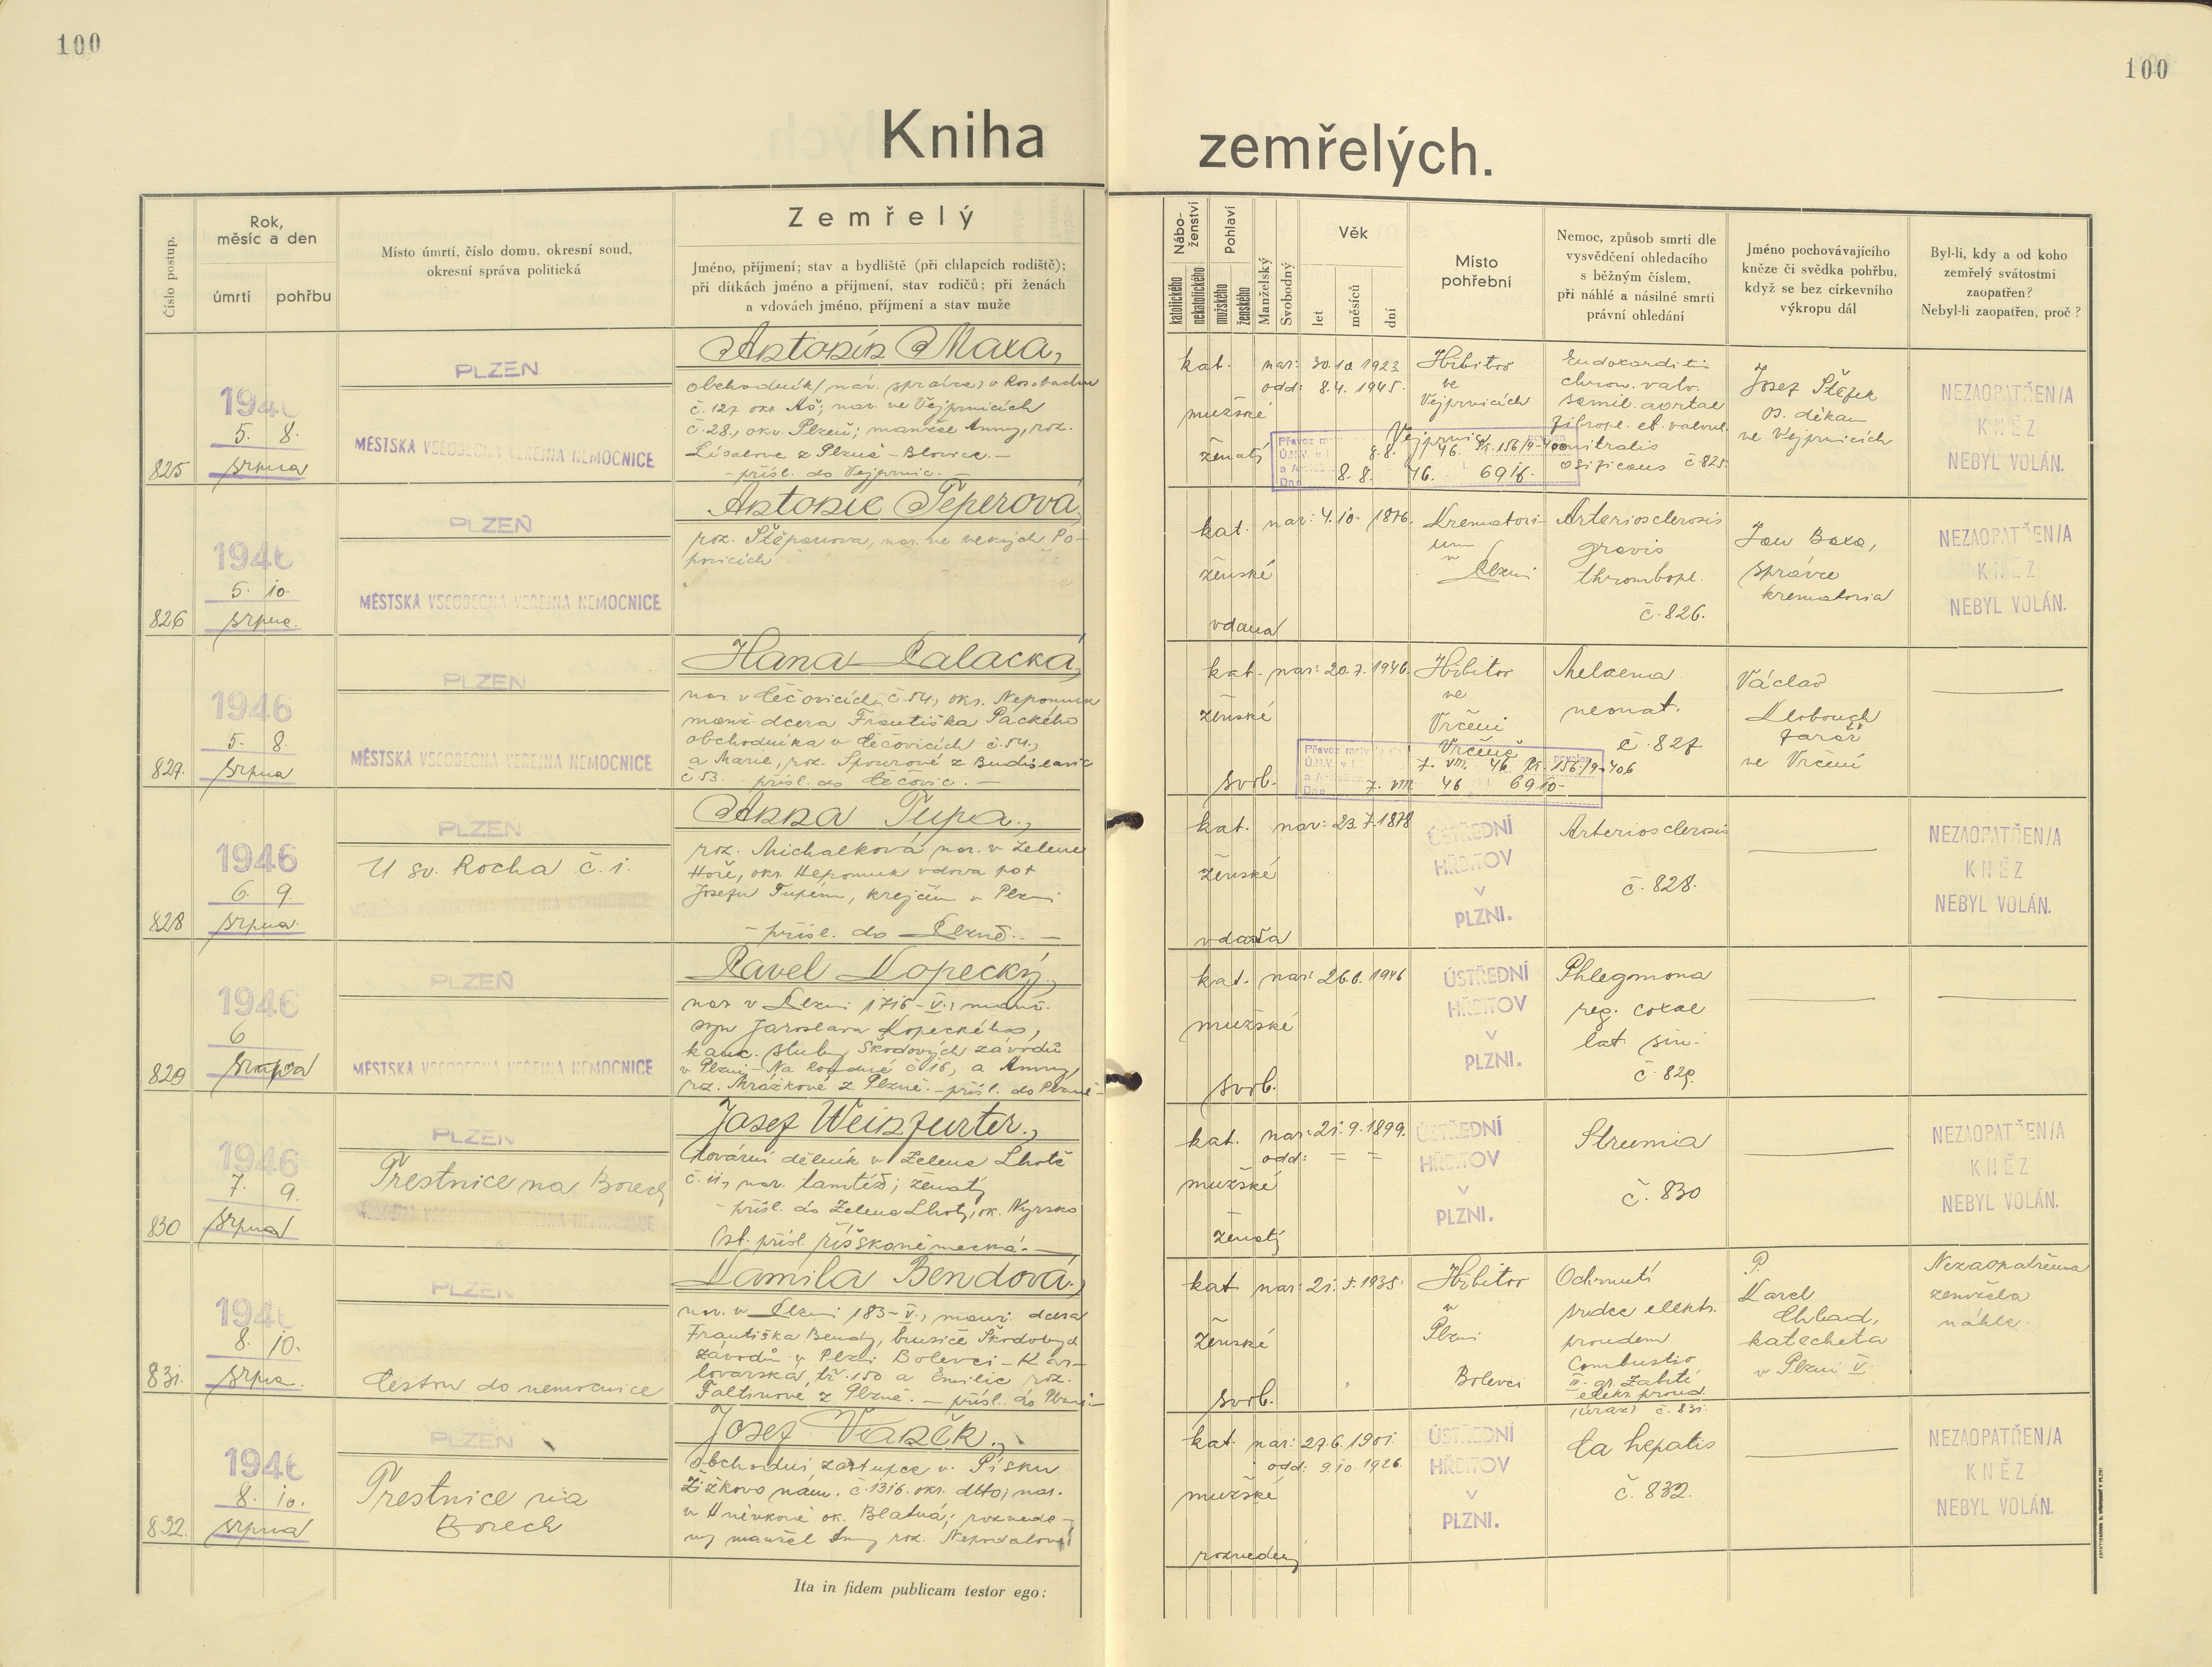 100
100
Kniha zemřelých.
Číslo postup.
Rok, měsíc a den
úmrtí
pohřbu
Místo úmrtí, číslo domu, okresní soud,
okresní správa politická
Zemřelý
Jméno, příjmení; stav a bydliště (při chlapcích rodiště);
při dítkách jméno a příjmení, stav rodičů; při ženách
a vdovách jméno, příjmení a stav muže
Nábo-
ženství
katolického
nekatolického
Pohlaví
mužského
ženského
Manželský
Svobodný
Věk
let
měsíců
dní
Místo
pohřební
Nemoc, způsob smrti dle
vysvědčení ohledacího
s běžným číslem,
při náhlé a násilné smrti
právní ohledání
Jméno pochovávajícího
kněze či svědka pohřbu,
když se bez církevního
výkropu dál
Byl-li, kdy a od koho
zemřelý svátostmi
zaopatřen?
Nebyl-li zaopatřen, proč?
825
1946
5. 8.
srpna
PLZEŇ
MĚSTSKÁ VŠEOBECNÁ VEŘEJNÁ NEMOCNICE
Antonín Maxa,
obchodník/nár. správce v Rossbachu
č. 127 okr. Aš; nar. ve Vejprnicích
č. 28., okr. Plzeň; manžel Anny, roz.
z Plzně - Blovice. -
- přísl. do Vejprnic. -
kat.
mužské
ženatý
nar: 30.10.1923
odd: 8.4.1945.
Hřbitov
ve
Vejprnicích
Endokarditis
chron. valv.
semil. aortae
fibropl. et valvul.
mitralis
osificans č 825.
Josef
os. děkan
ve Vejprnicích
NEZAOPATŘEN/A
KNĚZ
NEBYL VOLÁN.
Vejprnic
8.8. 46
8.8. 46. 6916.
826
1946
5. 10.
srpna.
PLZEŇ
MĚSTSKÁ VŠEOBECNÁ VEŘEJNÁ NEMOCNICE
Antonie Peperová,
roz. Štěpanova, nar. ve velkých Po-
povicích
kat.
ženské
vdaná
nar: 4.10. 1876.
Krematori-
um
v
Plzni
Arteriosclerosis
gravis
thrombopl.
č. 826.
Jan Baxa,
správce
krematoria
NEZAOPATŘEN/A
KNĚZ
NEBYL VOLÁN.
827.
1946
5. 8.
srpna
PLZEŇ
MĚSTSKÁ VŠEOBECNÁ VEŘEJNÁ NEMOCNICE
Hana Palacká,
nar. v Čečovicích č. 54, okr. Nepomuk
manž. dcera Františka Packého
obchodníka v Čečovicích č. 54.,
a Marie, roz. z Budislavic
č 53. - přísl. do Čečovic. -
kat.
ženské
svob.
nar: 20.7.1946.
Hřbitov
ve
Vrčeni
Melaena
neonat.
č. 827
Václav
Klobouch
farář
ve Vrčeni
Vrčeně
7. VIII. 46
7. VIII 46 6910-
828
1946
6. 9.
srpna.
PLZEŇ
U sv. Rocha č. 1.
Anna Tupa.,
roz. Michalková, nar. v Zelené
Hoře, okr. Nepomuk vdova po †
Josefu Tupém, krejčím v Plzni
- přísl. do Plzně. -
kat.
ženské
nar: 23.7.1878
ÚSTŘEDNÍ
HŘBITOV
V
PLZNI.
Arteriosclerosis
č. 828.
NEZAOPATŘEN/A
KNĚZ
NEBYL VOLÁN.
829
1946
6
srpna
PLZEŇ
MĚSTSKÁ VŠEOBECNÁ VEŘEJNÁ NEMOCNICE
Pavel Kopecký,
nar. v Plzni 1716 - V., manž.
syn Jaroslava Kopeckého,
kanc. sluhy Škodových závodů
v Plzni - Na Roudné č 16, a Anny,
roz. Mrázkové z Plzně. - přísl. do Plzně -
kat.
mužské
svob.
nar: 26.6. 1946
ÚSTŘEDNÍ
HŘBITOV
V
PLZNI.
Phlegmona
reg. coxae
lat. sin.
č. 829.
830
1946
7. 9.
srpna
PLZEŇ
Trestnice na Borech
Josef Weinfurter.,
tovární dělník v Zelené Lhotě
č. 11, nar. tamtéž; ženatý
- přísl. do Zelené Lhoty, ok. Nyrsko
st. přísl. říškoněmecká. -
kat.
mužské
ženatý
nar: 21.9.1899.
odd: = =
ÚSTŘEDNÍ
HŘBITOV
V
PLZNI.
Strumia
č. 830
NEZAOPATŘEN/A
KNĚZ
NEBYL VOLÁN.
831.
1946
8. 10.
srpna.
PLZEŇ
Cestou do nemocnice
Kamila Bendová,
nar. v Plzni 183 - V., manž. dcera
Františka Bendy, brusiče Škodových
závodů v Plzni Bolevci - Kar-
lovarská tř. 150 a Emilie roz.
Faltinové z Plzně. - přísl. do Plzně -
kat
ženské
svob.
nar: 21.5.1935.
Hřbitov
v
Plzni
Bolevci
Ochrnutí
srdce elektr.
proudem
Combustio
II. gr. Zabití
elektr. proud.
(úraz) č. 831.
P.
Karel
Chlad,
katecheta
v Plzni V.
Nezaopatřena
zemřela
náhle.
832.
1946
8. 10.
srpna
PLZEŇ
Trestnice na
Borech
Josef Vaněk.,
obchodní zástupce v Písku
Žižkovo nám. č. 1316. okr. dtto; nar.
v Hněvkově ok. Blatná; rozvede-
ný manžel Anny roz.
kat.
mužské
rozvedený
nar: 27.6.1901.
odd: 9.10 1926.
ÚSTŘEDNÍ
HŘBITOV
V
PLZNI.
Ca hepatis
č. 832.
NEZAOPATŘEN/A
KNĚZ
NEBYL VOLÁN.
Ita in fidem publicam testor ego: